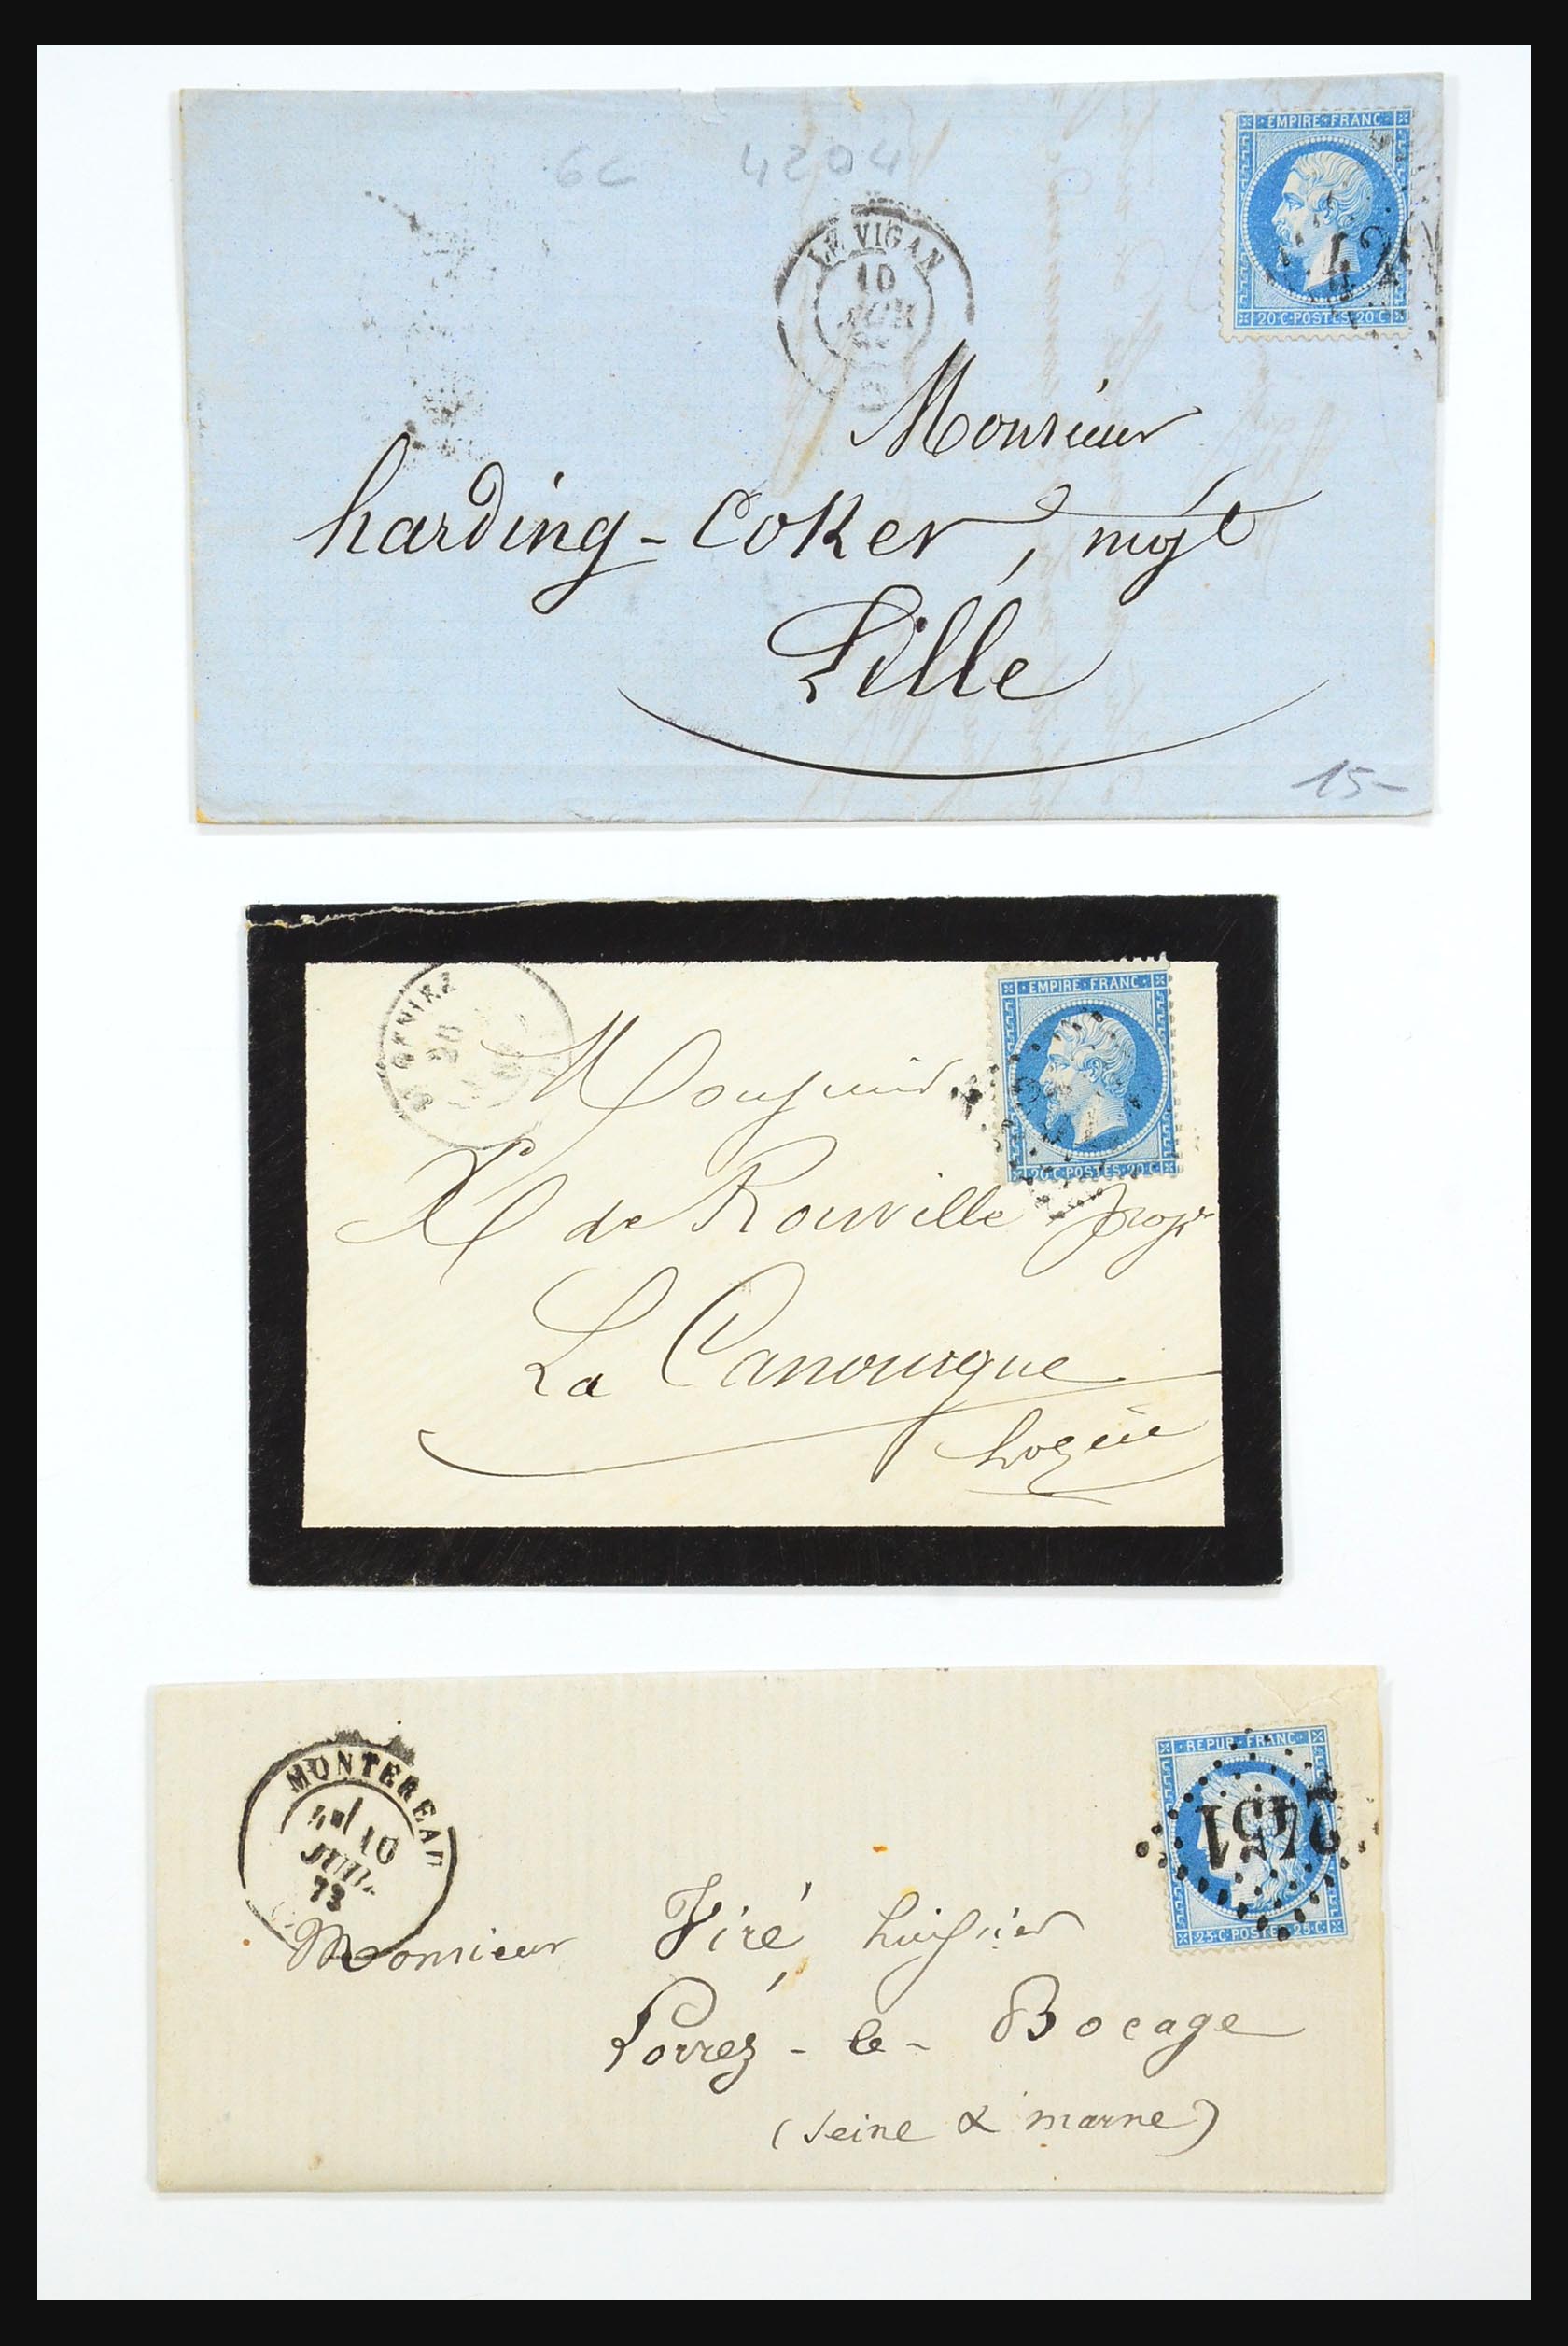 6c 4204
EMPIRE FRANC
20 C POSTES 20 C
LE VIGAN
10
Monsieur
harding-Coker, nég.t
Lille
15-
EMPIRE FRANC
20 C POSTES 20 C
GENIEZ
20
Monsieur
X de Rouville prop.re
La Canourgue
Lozère
REPUB FRANC
25 C POSTES 25 C
2451
MONTEREAU
10
JUIL
73
Monsieur Viré, huissier
Lorrez-le-Bocage
(Seine & marne)